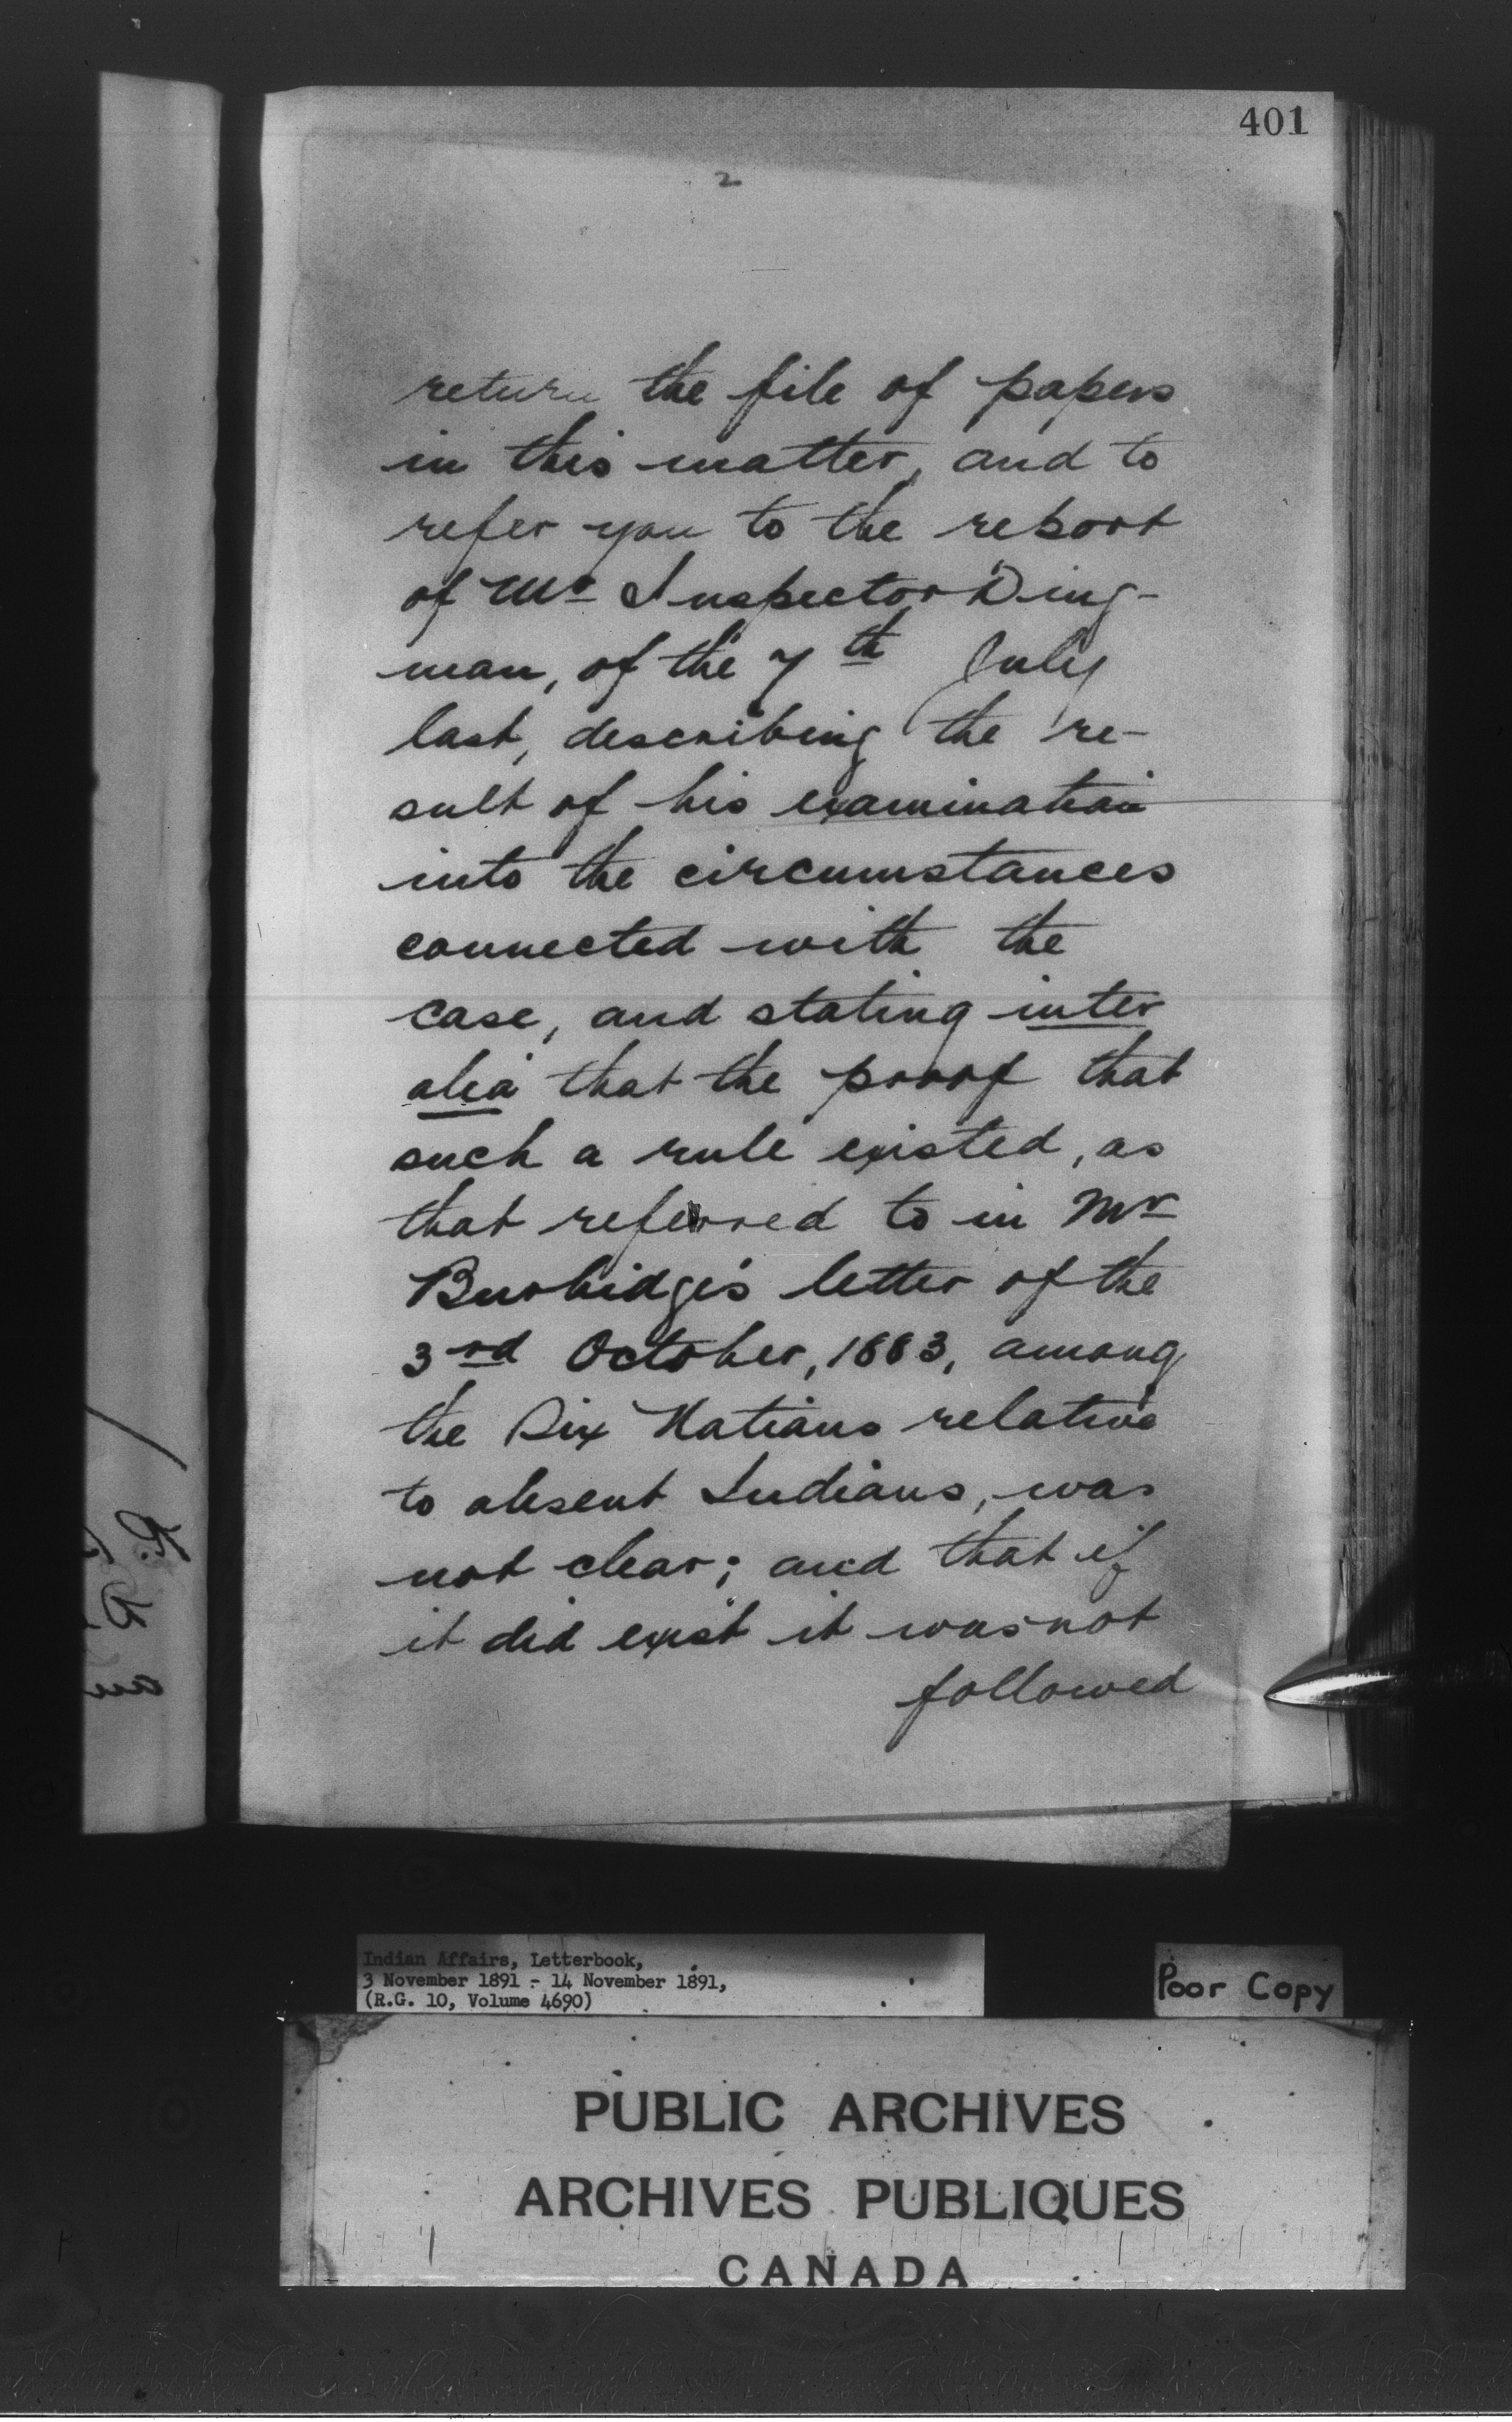 401
2
return the file of papers
in this matter, and to
refer you to the report
of Mr Inspector Ding-
man, of the 7th July
last, describing the re-
sult of his examination
into the circumstances
connected with the
case, and stating inter
alia that the proof that
such a rule existed, as
that referred to in Mr
Burbidge's letter of the
3rd October, 1883, among
the Six Nations relative
to absent Indians, was
not clear; and that if
it did exist it was not
followed
Indian Affairs, Letterbook,
3 November 1891 - 14 November 1891,
(R.G. 10, Volume 4690)
Poor Copy
PUBLIC ARCHIVES
ARCHIVES PUBLIQUES
CANADA